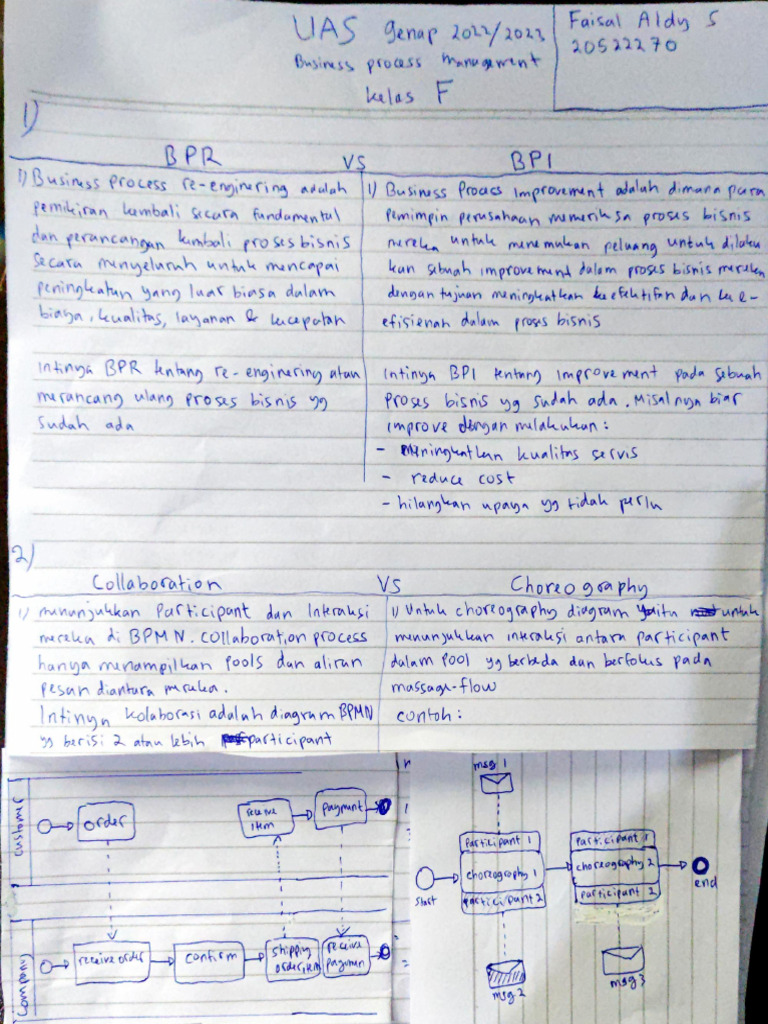 UAS genap 2022/2023
Business process management
kelas F
Faisal Aldy S
20522270
1)
BPR VS BPI
1) Business Process re-enginering adalah
pemikiran kembali secara fundamental
dan perancangan kembali proses bisnis
secara menyeluruh untuk mencapai
peningkatan yang luar biasa dalam
biaya, kualitas, layanan & kecepatan
Intinya BPR tentang re-enginering atau
merancang ulang proses bisnis yg
sudah ada
1) Business Process Improvement adalah dimana para
pemimpin perusahaan memeriksa proses bisnis
mereka untuk menemukan peluang untuk dilaku
kan sebuah improvement dalam proses bisnis mereka
dengan tujuan meningkatkan keefektifan dan ke-
efisienan dalam proses bisnis
Intinya BPI tentang Improvement pada sebuah
proses bisnis yg sudah ada. Misalnya biar
improve dengan melakukan:
- Meningkatkan kualitas servis
- reduce cost
- hilangkan upaya yg tidak perlu
2)
Collaboration VS Choreography
1) menunjukkan Participant dan Interaksi
mereka di BPMN. Collaboration process
hanya menampilkan pools dan aliran
pesan diantara mereka.
Intinya kolaborasi adalah diagram BPMN
yg berisi 2 atau lebih participant
1) Untuk choreography diagram yaitu untuk
menunjukkan interaksi antara participant
dalam Pool yg berbeda dan berfokus pada
massage-flow
contoh:
customer
order
receive item
payment
company
receive order
confirm
shipping order item
receive paymen
msg 1
Participant 1
choreography 1
participant 2
start
msg 2
Participant 1
choreography 2
participant 2
end
msg 3